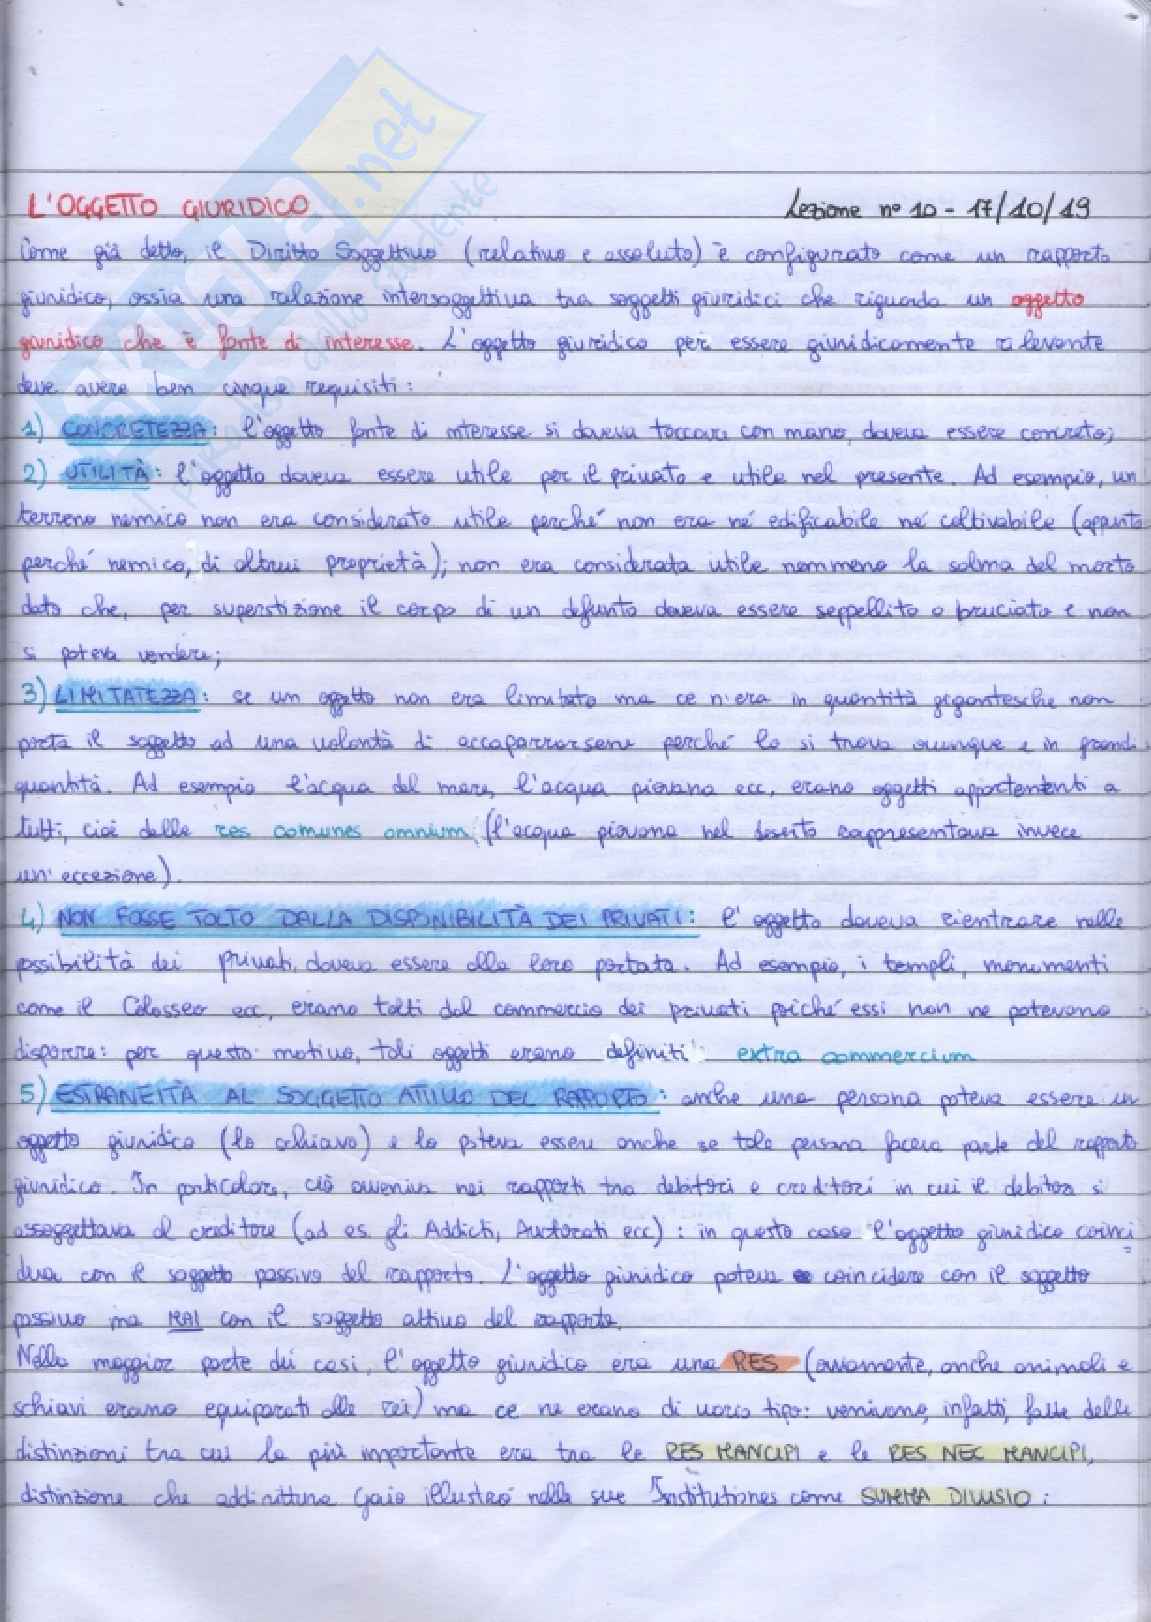 L'OGGETTO GIURIDICO Lezione n° 10 - 17/10/19
Come già detto, il Diritto Soggettivo (relativo e assoluto) è configurato come un rapporto
giuridico, ossia una relazione intersoggettiva tra soggetti giuridici che riguarda un oggetto
giuridico che è fonte di interesse. L'oggetto giuridico per essere giuridicamente rilevante
deve avere ben cinque requisiti:
1) CONCRETEZZA: l'oggetto fonte di interesse si doveva toccare con mano, doveva essere concreto;
2) UTILITÀ: l'oggetto doveva essere utile per il privato e utile nel presente. Ad esempio, un
terreno nemico non era considerato utile perché non era né edificabile né coltivabile (appunto
perché nemico, di altrui proprietà); non era considerata utile nemmeno la salma del morto
dato che, per superstizione il corpo di un defunto doveva essere seppellito o bruciato e non
si poteva vendere;
3) LIMITATEZZA: se un oggetto non era limitato ma ce n'era in quantità gigantesche non
porta il soggetto ad una volontà di accaparrarsene perché lo si trova ovunque e in grandi
quantità. Ad esempio l'acqua del mare, l'acqua piovana ecc, erano oggetti appartenenti a
tutti, cioè delle res comunes omnium (l'acqua piovana nel deserto rappresentava invece
un'eccezione).
4) NON FOSSE TOLTO DALLA DISPONIBILITÀ DEI PRIVATI: l'oggetto doveva rientrare nelle
possibilità dei privati, doveva essere alla loro portata. Ad esempio, i templi, monumenti
come il Colosseo ecc, erano tolti dal commercio dei privati poiché essi non ne potevano
disporre: per questo motivo, tali oggetti erano definiti extra commercium
5) ESTRANEITÀ AL SOGGETTO ATTIVO DEL RAPPORTO: anche una persona poteva essere un
oggetto giuridico (lo schiavo) e lo poteva essere anche se tale persona faceva parte del rapporto
giuridico. In particolare, ciò avveniva nei rapporti tra debitori e creditori in cui il debitore si
assoggettava al creditore (ad es. gli Addicti, Auctorati ecc): in questo caso l'oggetto giuridico coinci
deva con il soggetto passivo del rapporto. L'oggetto giuridico poteva coincidere con il soggetto
passivo ma MAI con il soggetto attivo del rapporto.
Nella maggior parte dei casi, l'oggetto giuridico era una RES (ovviamente, anche animali e
schiavi erano equiparati alle rei) ma ce ne erano di vario tipo: venivano, infatti, fatte delle
distinzioni tra cui la più importante era tra le RES MANCIPI e le RES NEC MANCIPI,
distinzione che addirittura Gaio illustrò nelle sue Institutiones come SUMMA DIVISIO: